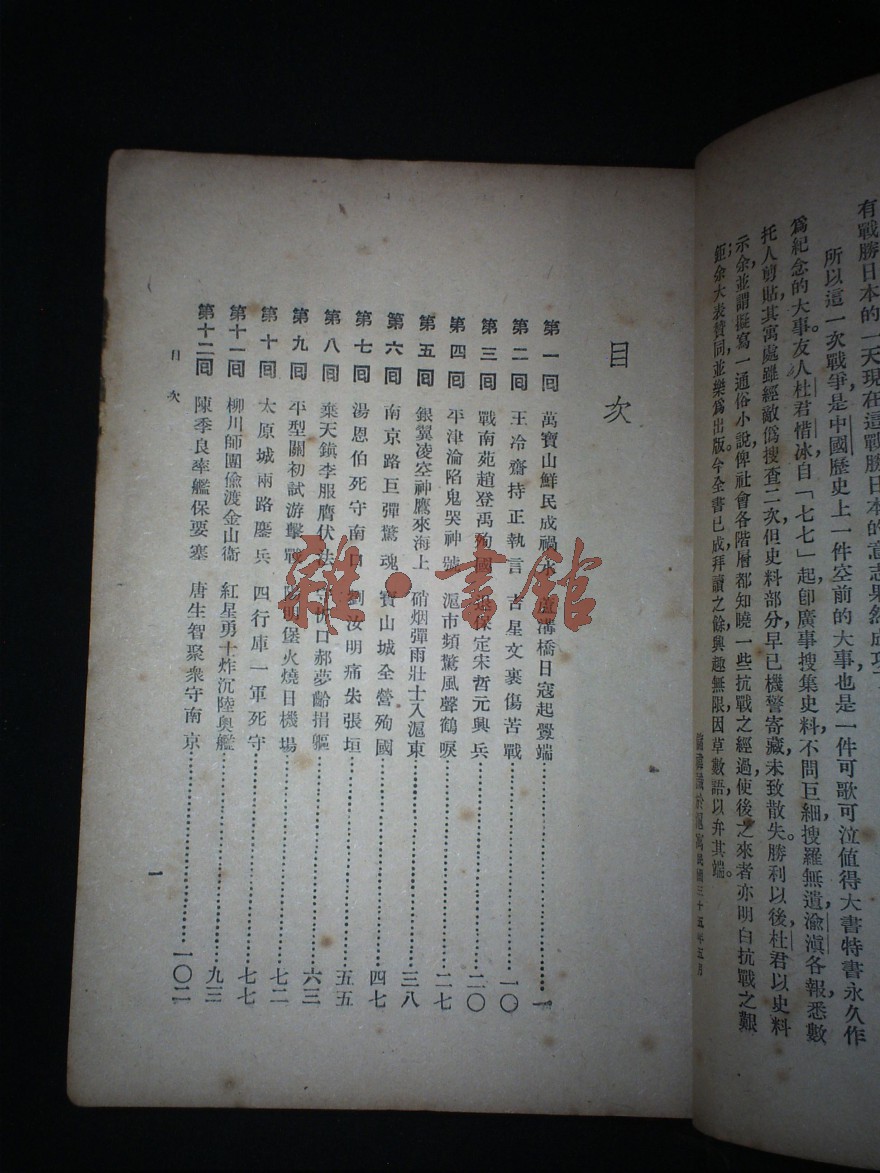 有戰勝日本的一天現在這戰勝日本的意志果然成功了
所以這一次戰爭，是中國歷史上一件空前的大事，也是一件可歌可泣值得大書特書永久作
爲紀念的大事。友人杜君惜冰，自「七七」起，卽廣事搜集史料，不問巨細，搜羅無遺，渝滇各報，悉數
托人剪貼，其寓處雖經敵僞搜查二次，但史料部分早已機警寄藏，未致散失。勝利以後，杜君以史料
示余，並謂擬寫一通俗小說，俾社會各階層都知曉一些抗戰之經過，使後之來者亦明白抗戰之艱
鉅；余大表贊同，並樂爲出版。今全書已成，拜讀之餘，興趣無限，因草數語，以弁其端。
民國三十五年五月
目次
第一回 萬寶山鮮民成禍水 盧溝橋日寇起釁端 一
第二回 王冷齋持正執言 吉星文裹傷苦戰 一〇
第三回 戰南苑趙登禹殉國 退保定宋哲元興兵 二〇
第四回 平津淪陷鬼哭神號 滬市頻驚風聲鶴唳 二七
第五回 銀翼凌空神鷹來海上 硝烟彈雨壯士入滬東 三八
第六回 南京路巨彈驚魂 寶山城全營殉國 四七
第七回 湯恩伯死守南口 劉汝明痛失張垣 五五
第八回 棄天鎮李服膺伏法 守忻口郝夢齡捐軀 六三
第九回 平型關初試游擊戰 陽明堡火燒日機場 七二
第十回 太原城兩路鏖兵 四行庫一軍死守 七七
第十一回 柳川師團偷渡金山衞 紅星勇士炸沉陸奧艦 九三
第十二回 陳季良率艦保要塞 唐生智聚衆守南京 一〇二
目次
一
雜·書館